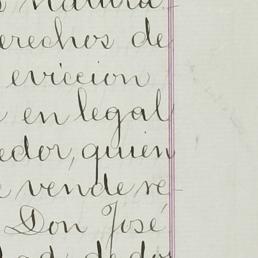 s natura
erechos de
eviccion
en legal
edor, quien
e vende re
Don José
dad de do